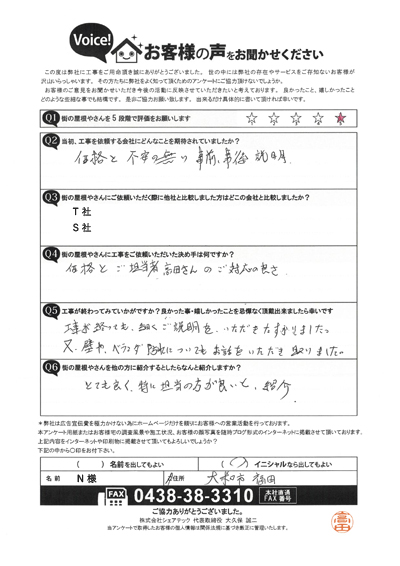 Voice!
お客様の声をお聞かせください
この度は弊社に工事をご用命頂き誠にありがとうございました。世の中には弊社の存在やサービスをご存知ないお客様が
沢山いらっしゃいます。その方たちに弊社をよく知って頂くためのアンケートにご協力頂けないでしょうか。
お客様のご意見をお聞かせいただき今後の活動に反映させていただきたいと考えております。良かったこと、嬉しかったこと
どのような些細な事でも結構です。是非ご協力お願い致します。出来るだけ具体的に書いて頂ければ幸いです。
Q1 街の屋根やさんを5段階で評価をお願いします ☆ ☆ ☆ ☆ ★
Q2 当初、工事を依頼する会社にどんなことを期待されていましたか?
価格と不安の無い事前、事後説明
Q3 街の屋根やさんにご依頼いただく際に他社と比較しました方はどこの会社と比較しましたか?
T社
S社
Q4 街の屋根やさんに工事をご依頼いただいた決め手は何ですか?
価格とご担当者 高田さんのご対応の良さ
Q5 工事が終わってみていかがですか?良かった事・嬉しかったことを忌憚なく頂戴出来ましたら幸いです
工事が終っても、細くご説明を、いただきたすかりました。
又、壁や、ベランダ防水についてもお話をいただき助りました。
Q6 街の屋根やさんを他の方に紹介するとしたらなんと紹介しますか?
とても良く、特に担当の方が良いと、紹介
*弊社は広告宣伝費を極力かけない為にホームページだけを頼りにお客様への営業活動を行っております。
※アンケート用紙またはお客様宅の調査風景や施工状況、お客様の顔写真を随時ブログ形式のインターネットに掲載させて頂いております。
上記内容をインターネットや印刷物に掲載させて頂いてもよろしいでしょうか?
下記の中から〇印をお付け下さい。
( ) 名前を出してもよい ( ○ ) イニシャルなら出してもよい
名前 N 様 ご住所
FAX 0438-38-3310 本社直通 FAX番号
ご協力ありがとうございました。
株式会社シェアテック 代表取締役 大久保 誠二
当アンケートで取得したお客様の個人情報は関係法令に基づき厳正に管理いたします。